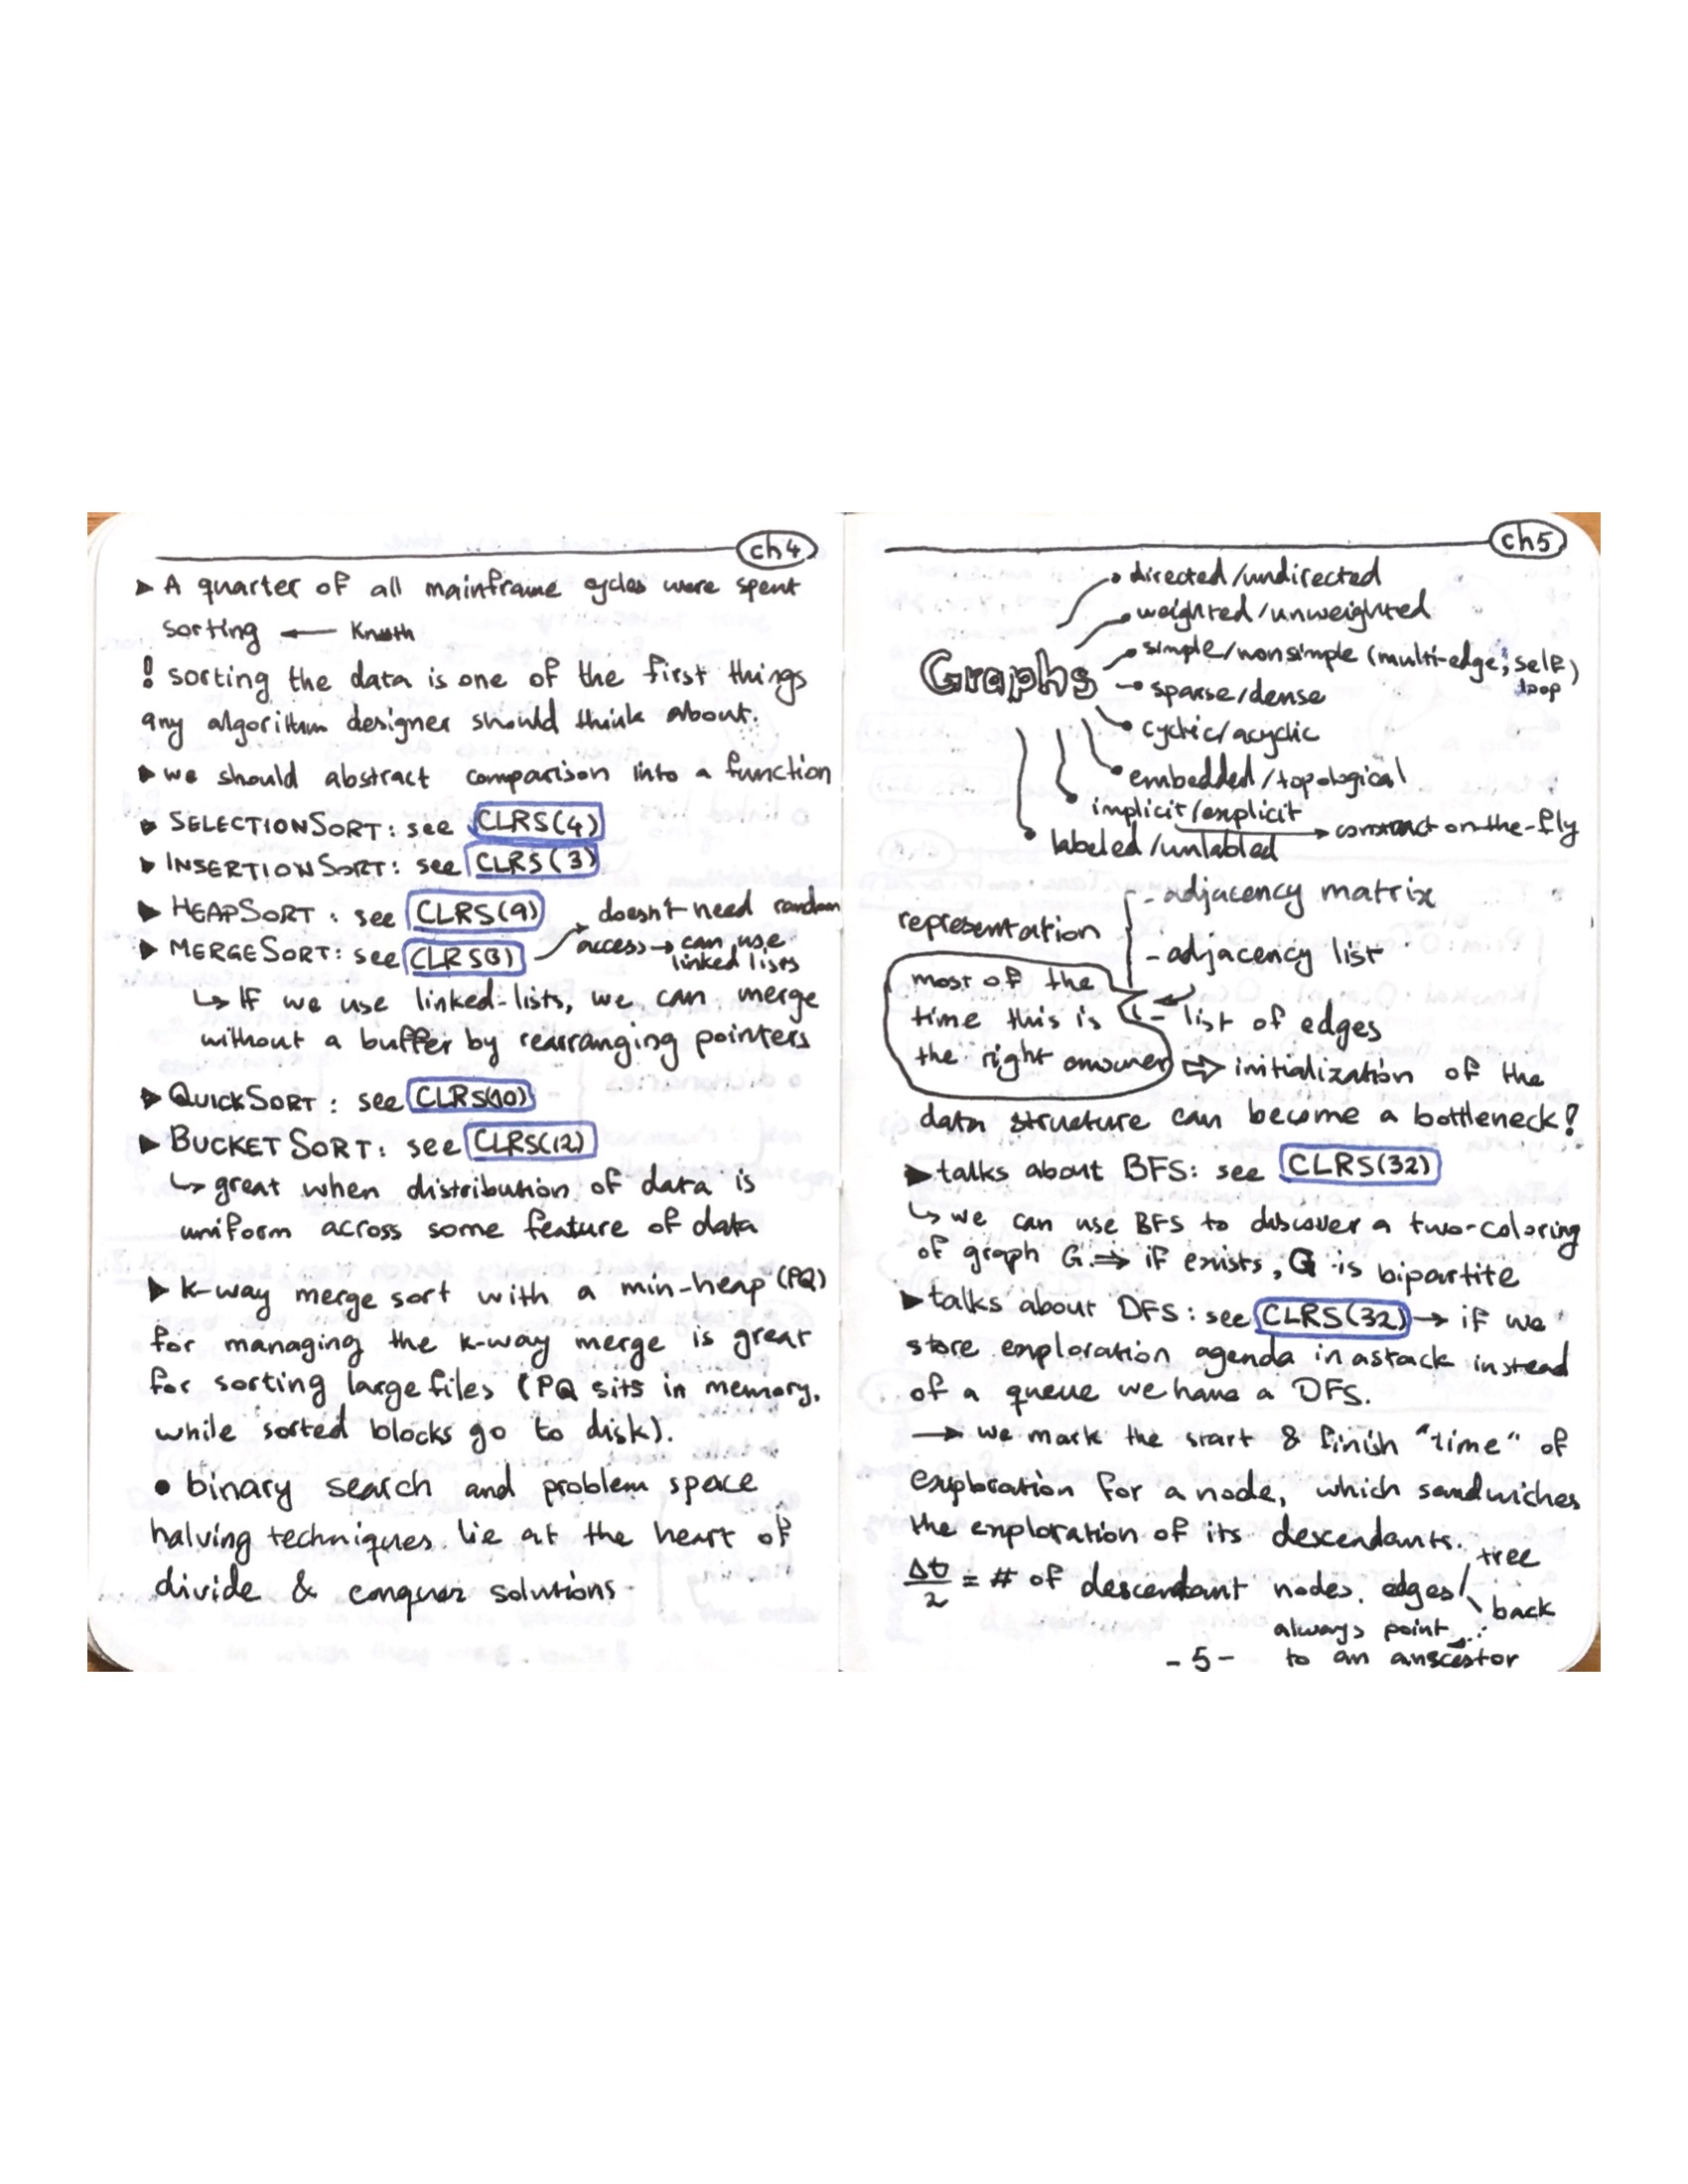 ch4
▶ A quarter of all mainframe cycles were spent
sorting ← Knuth
! sorting the data is one of the first things
any algorithm designer should think about.
▶ we should abstract comparison into a function
▶ SELECTIONSORT: see CLRS(4)
▶ INSERTIONSORT: see CLRS(3)
▶ HEAPSORT: see CLRS(9)
▶ MERGESORT: see CLRS(3) → doesn't need random
access → can use
linked lists
↳ If we use linked-lists, we can merge
without a buffer by rearranging pointers
▶ QUICKSORT: see CLRS(10)
▶ BUCKETSORT: see CLRS(12)
↳ great when distribution of data is
uniform across some feature of data
▶ k-way merge sort with a min-heap (PQ)
for managing the k-way merge is great
for sorting large files (PQ sits in memory,
while sorted blocks go to disk).
• binary search and problem space
halving techniques lie at the heart of
divide & conquer solutions.
ch5
directed/undirected
weighted/unweighted
simple/nonsimple (multi-edge, self
loop)
Graphs
sparse/dense
cyclic/acyclic
embedded/topological
implicit/explicit
→ construct on-the-fly
labeled/unlabled
representation
- adjacency matrix
- adjacency list
- list of edges
most of the
time this is
the right answer
⇒ initialization of the
data structure can become a bottleneck!
▶ talks about BFS: see CLRS(32)
↳ we can use BFS to discover a two-coloring
of graph G. ⇒ if exists, G is bipartite
▶ talks about DFS: see CLRS(32) → if we
store exploration agenda in a stack instead
of a queue we have a DFS.
→ we mark the start & finish "time" of
exploration for a node, which sandwiches
the exploration of its descendants.
Δt/2 = # of descendant nodes. edges / tree
\ back
always point
to an anscestor
- 5 -